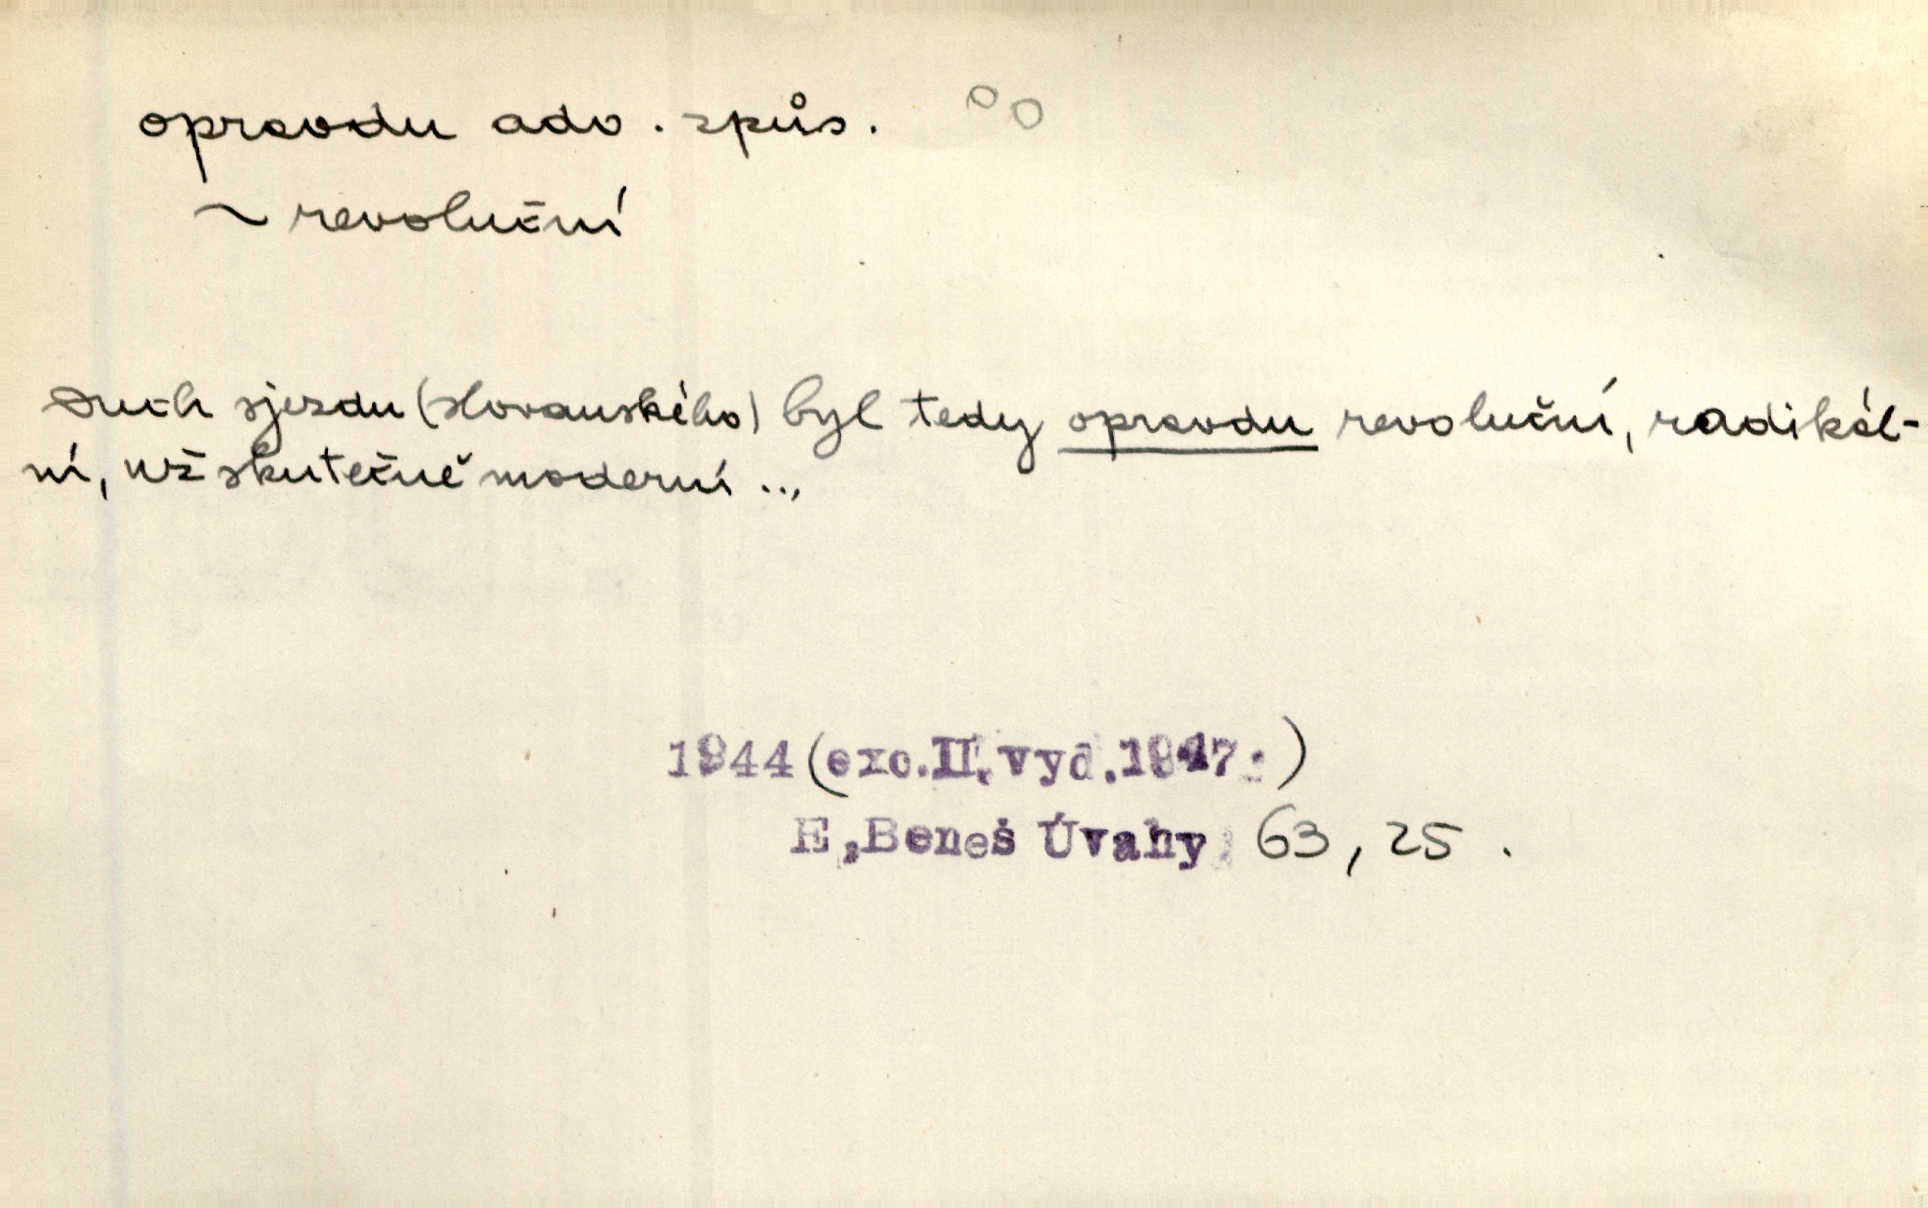 opravdu adv. způs.
~ revoluční
Duch sjezdu (slovanského) byl tedy opravdu revoluční, radikál-
ní, už skutečně moderní ...
1944 (exc. II. vyd. 1947.)
E. Beneš Úvahy 63, 25.